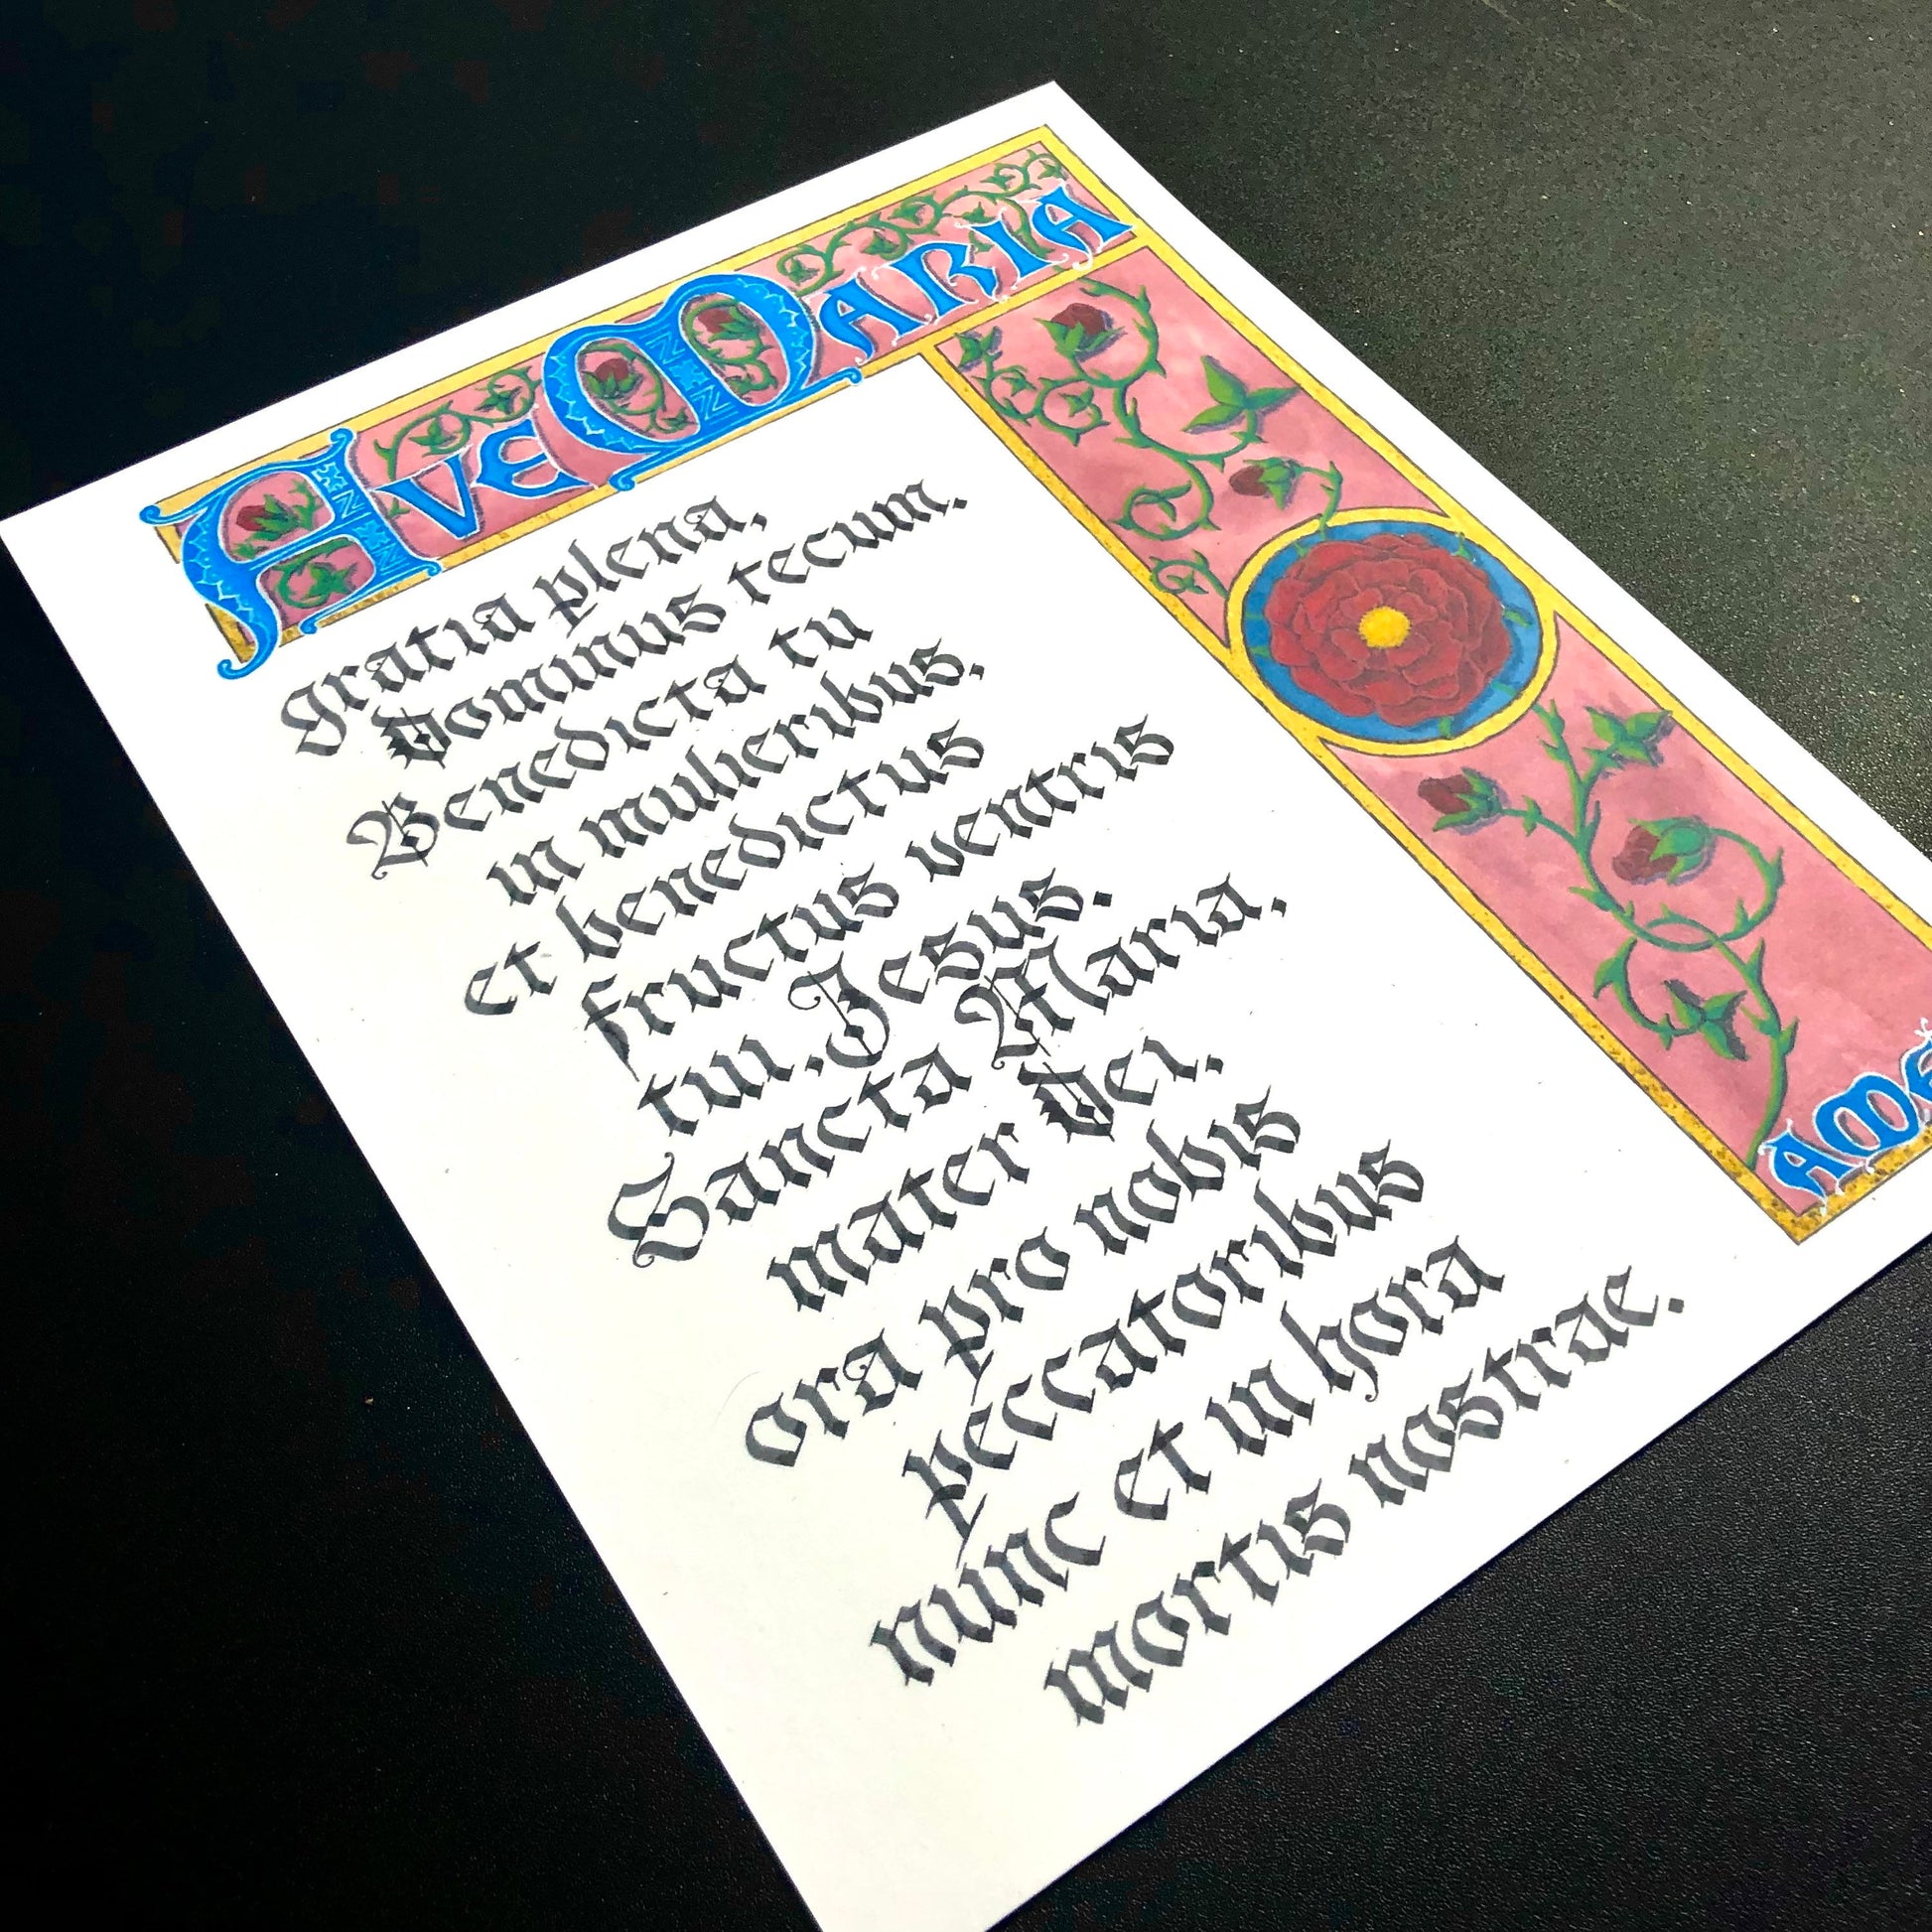 AVE MARIA
gratia plena,
Dominus tecum.
Benedicta tu
in mulieribus,
et benedictus
fructus ventris
tui. Jesus.
Sancta Maria,
mater Dei.
ora pro nobis
peccatoribus
nunc et in hora
mortis nostrae.
AME